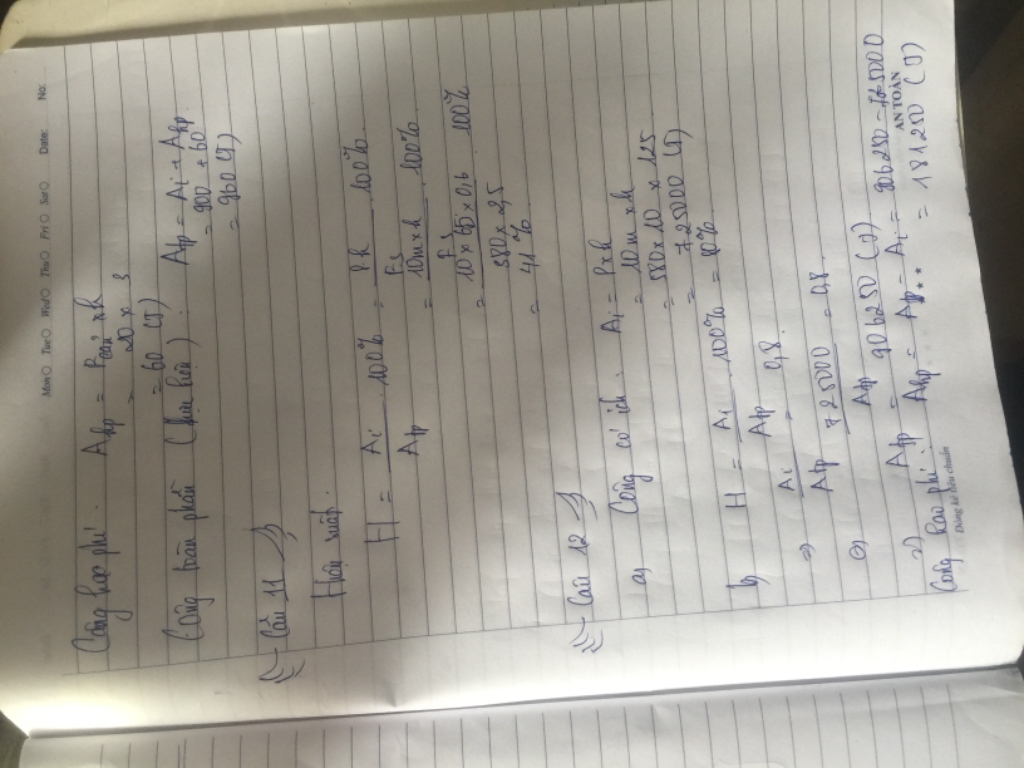 Mon Tue Wed Thu Fri Sat Date: No:
Công hao phí: Ahp = Pcản x h
= 20 x 3
= 60 (J)
Công toàn phần Atp = Ai + Ahp
= 900 + 60
= 960 (J)
Câu 11
Hiệu suất:
H = Ai / Atp . 100% = P.h / F.s . 100%
= 10m x h / F.s . 100%
= 10 x 65 x 0,6 / 380 x 2,5 . 100%
= 41%
Câu 12
a) Công có ích: Ai = P x h
= 10m x h
= 580 x 10 x 125
= 725000 (J)
b) H = Ai / Atp . 100% = 80%
=> Ai / Atp = 0,8
725000 / Atp = 0,8
=> Atp = 906250 (J)
c) Atp =
Công hao phí: Ahp = Atp - Ai = 906250 - 725000
= 181250 (J)
Đúng kẻ tiêu chuẩn
AN TOÀN